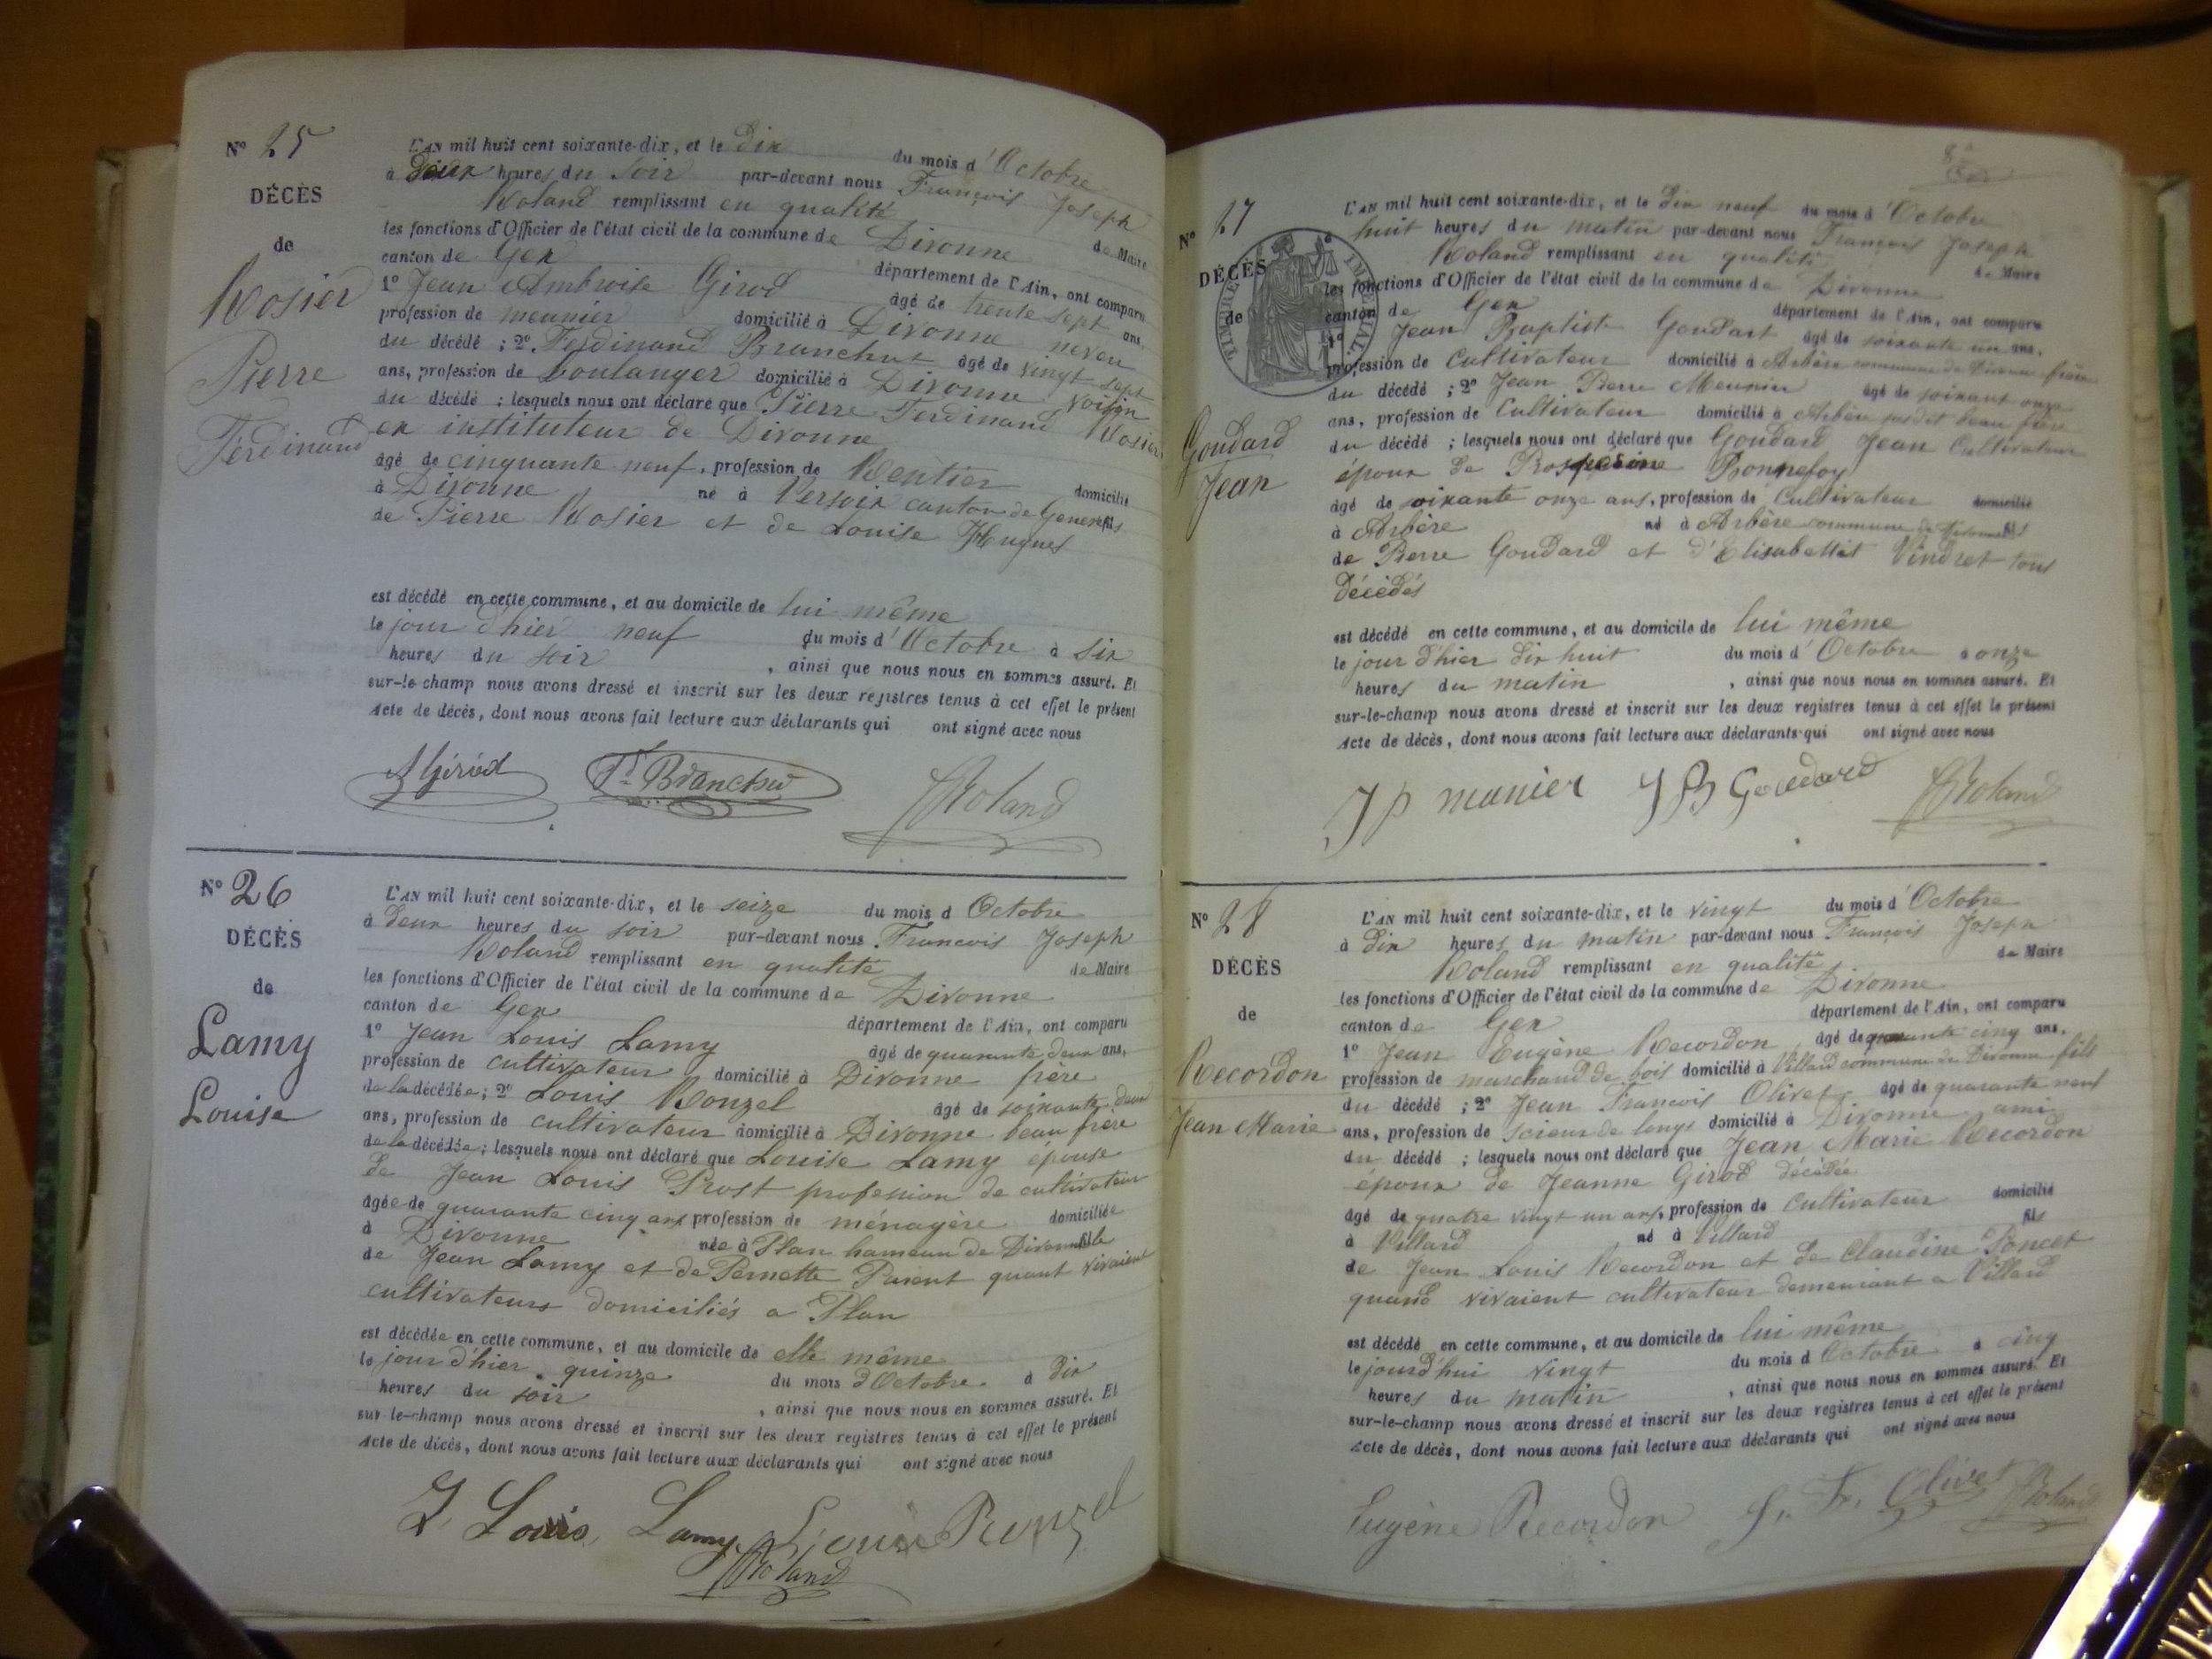 N° 25
DÉCÈS
de
Rosier
Pierre
Ferdinand
L'AN mil huit cent soixante-dix, et le dix du mois d'Octobre
à deux heures du soir par-devant nous François Joseph
Roland remplissant en qualité de Maire
les fonctions d'Officier de l'état civil de la commune de Divonne
canton de Gex département de l'Ain, ont comparu
1° Jean Ambroise Girod âgé de trente sept ans,
profession de meunier domicilié à Divonne neveu
du décédé ; 2° Ferdinand Branchut âgé de vingt sept
ans, profession de boulanger domicilié à Divonne voisin
du décédé ; lesquels nous ont déclaré que Pierre Ferdinand Rosier
ex instituteur de Divonne
âgé de cinquante neuf, profession de Rentier domicilié
à Divonne né à Versoix canton de Genève fils
de Pierre Rosier et de Louise Hugues
est décédé en cette commune, et au domicile de lui même
le jour d'hier neuf du mois d'Octobre à six
heures du soir , ainsi que nous nous en sommes assuré. Et
sur-le-champ nous avons dressé et inscrit sur les deux registres tenus à cet effet le présent
Acte de décès, dont nous avons fait lecture aux déclarants qui ont signé avec nous
A Girod Fd Branchu Roland
N° 26
DÉCÈS
de
Lamy
Louise
L'AN mil huit cent soixante-dix, et le seize du mois d Octobre
à deux heures du soir par-devant nous François Joseph
Roland remplissant en qualité de Maire
les fonctions d'Officier de l'état civil de la commune de Divonne
canton de Gex département de l'Ain, ont comparu
1° Jean Louis Lamy âgé de quarante deux ans,
profession de cultivateur domicilié à Divonne frère
de la décédée ; 2° Louis Ronzel âgé de soixante deux
ans, profession de cultivateur domicilié à Divonne beau frère
de la décédée ; lesquels nous ont déclaré que Louise Lamy épouse
de Jean Louis Prost profession de cultivateur
âgée de quarante cinq ans profession de ménagère domiciliée
à Divonne née à Plan hameau de Divonne fille
de Jean Lamy et de Pernette Parent quant vivaient
cultivateurs domiciliés a Plan
est décédée en cette commune, et au domicile de elle même
le jour d'hier quinze du mois d'Octobre à dix
heures du soir , ainsi que nous nous en sommes assuré. Et
sur-le-champ nous avons dressé et inscrit sur les deux registres tenus à cet effet le présent
Acte de décès, dont nous avons fait lecture aux déclarants qui ont signé avec nous
J. Louis Lamy Louis Ronzel
Roland
N° 27
DÉCÈS
de
TIMBRE IMPÉRIAL
Goudard
Jean
L'AN mil huit cent soixante-dix, et le dix neuf du mois d'Octobre
à huit heures du matin par-devant nous François Joseph
Roland remplissant en qualité de Maire
les fonctions d'Officier de l'état civil de la commune de Divonne
canton de Gex département de l'Ain, ont comparu
1° Jean Baptiste Goudart âgé de soixante un ans,
profession de Cultivateur domicilié à Arbère commune de Divonne frère
du décédé ; 2° Jean Pierre Meunier âgé de soixante onze
ans, profession de Cultivateur domicilié à Arbère susdit beau frère
du décédé ; lesquels nous ont déclaré que Goudard Jean Cultivateur
époux de Prosperine Bonnefoy
âgé de soixante onze ans, profession de Cultivateur domicilié
à Arbère né à Arbère commune de Divonne fils
de Pierre Goudard et d'Elisabeth Vindret tous
décédés
est décédé en cette commune, et au domicile de lui même
le jour d'hier dix huit du mois d'Octobre à onze
heures du matin , ainsi que nous nous en sommes assuré. Et
sur-le-champ nous avons dressé et inscrit sur les deux registres tenus à cet effet le présent
Acte de décès, dont nous avons fait lecture aux déclarants qui ont signé avec nous
J p munier J B Goudard Roland
N° 28
DÉCÈS
de
Recordon
Jean Marie
L'AN mil huit cent soixante-dix, et le vingt du mois d'Octobre
à dix heures du matin par-devant nous François Joseph
Roland remplissant en qualité de Maire
les fonctions d'Officier de l'état civil de la commune de Divonne
canton de Gex département de l'Ain, ont comparu
1° Jean Eugène Recordon âgé de quarante cinq ans,
profession de marchand de bois domicilié à Villard commune de Divonne fils
du décédé ; 2° Jean François Olivet âgé de quarante neuf
ans, profession de scieur de longs domicilié à Divonne ami
du décédé ; lesquels nous ont déclaré que Jean Marie Recordon
époux de Jeanne Girod décédée
âgé de quatre vingt un ans, profession de Cultivateur domicilié
à Villard né à Villard fils
de Jean Louis Recordon et de Claudine Poncet
quand vivaient cultivateur demeurant a Villard
est décédé en cette commune, et au domicile de lui même
le jourd'hui vingt du mois d Octobre à cinq
heures du matin , ainsi que nous nous en sommes assuré. Et
sur-le-champ nous avons dressé et inscrit sur les deux registres tenus à cet effet le présent
Acte de décès, dont nous avons fait lecture aux déclarants qui ont signé avec nous
Eugène Recordon J. F. Olivet Roland